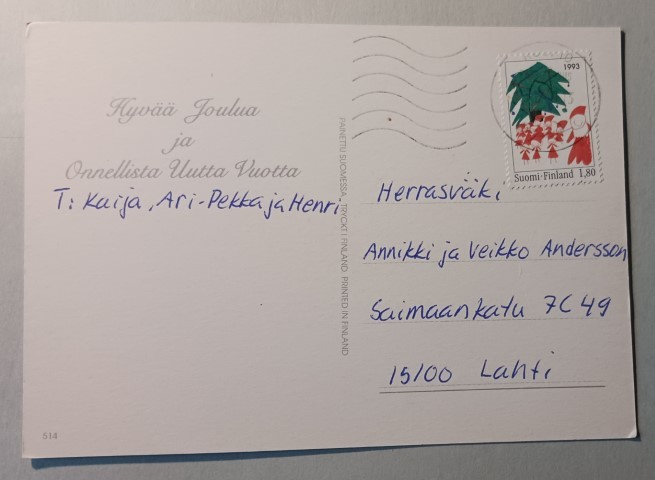 Hyvää Joulua
ja
Onnellista Uutta Vuotta
T: Kaija, Ari-Pekka ja Henri
514
PAINETTU SUOMESSA TRYCKT I FINLAND PRINTED IN FINLAND
1993
Suomi-Finland 1,80
Herrasväki
Annikki ja Veikko Andersson
Saimaankatu 7C 49
15100 Lahti